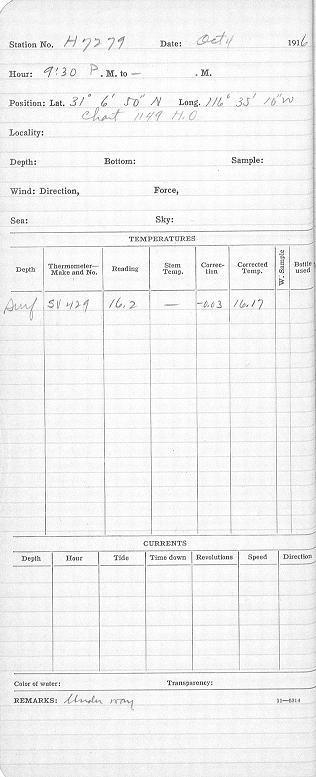 Station No. H 7279 Date: Oct 4 1916
Hour: 9:30 P. M. to — . M.
Position: Lat. 31° 6' 50" N Long. 116° 35' 10" W
Chart 1149 H.O
Locality:
Depth: Bottom: Sample:
Wind: Direction, Force,
Sea: Sky:
TEMPERATURES
Depth Thermometer—Make and No. Reading Stem Temp. Correction Corrected Temp. W. Sample Bottle used
Surf SV 429 16.2 — -0.03 16.17
CURRENTS
Depth Hour Tide Time down Revolutions Speed Direction
Color of water: Transparency:
REMARKS: Under way 11—6314